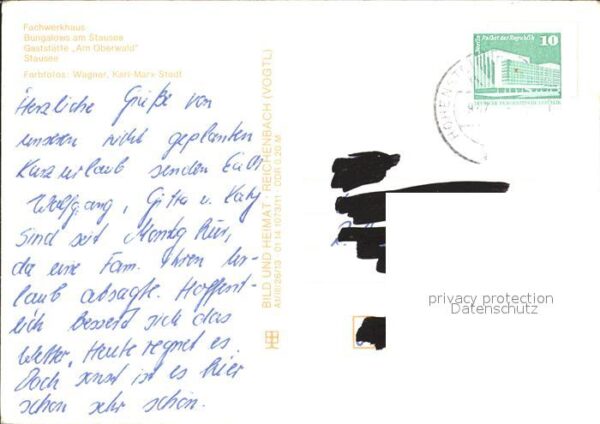 Fachwerkhaus
Bungalows am Stausee
Gaststätte „Am Oberwald"
Stausee
Farbfotos: Wagner, Karl-Marx-Stadt
Herzliche Grüße von
unserem nicht geplanten
Kurzurlaub senden Euch
Wolfgang, Gitta u. Katj
Sind seit Montag hier,
da eine Fam. Ihren Ur-
laub absagte. Hoffent-
lich bessert sich das
Wetter. Heute regnet es.
Doch sonst ist es hier
schon sehr schön.
BILD UND HEIMAT · REICHENBACH (VOGTL)
A1/III/26/13 01 14 1073/11 · DDR 0,20 M
Berlin, Palast der Republik
10
DEUTSCHE DEMOKRATISCHE REPUBLIK
HOHEN
privacy protection
Datenschutz